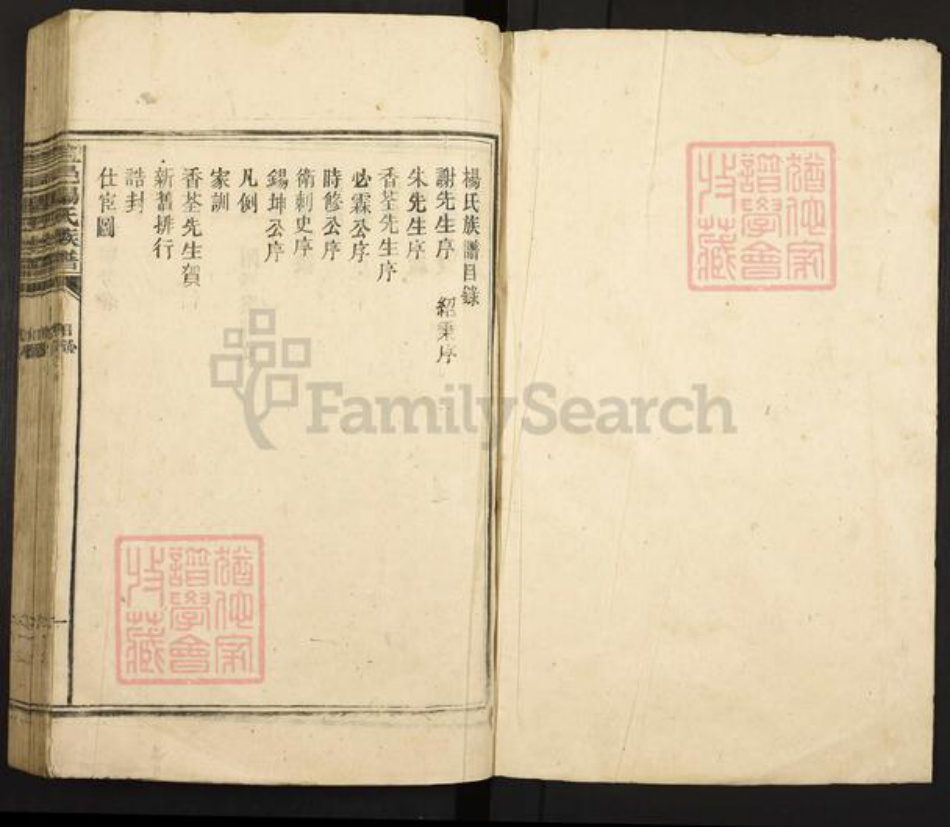 楊氏族譜目錄
謝先生序 紹秉序
朱先生序
香荃先生序
必霖公序
時修公序
衛刺史序
錫坤公序
凡例
家訓
香荃先生賀
新舊排行
誥封
仕宦圖
楊氏族譜
目錄
猶他家
譜學會
收藏
猶他家
譜學會
收藏
FamilySearch